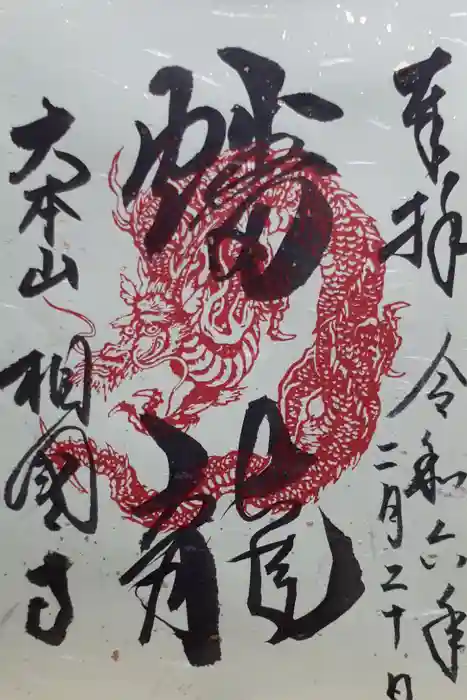 奉拝
令和六年
二月二十日
蟠龍
大本山
相国寺